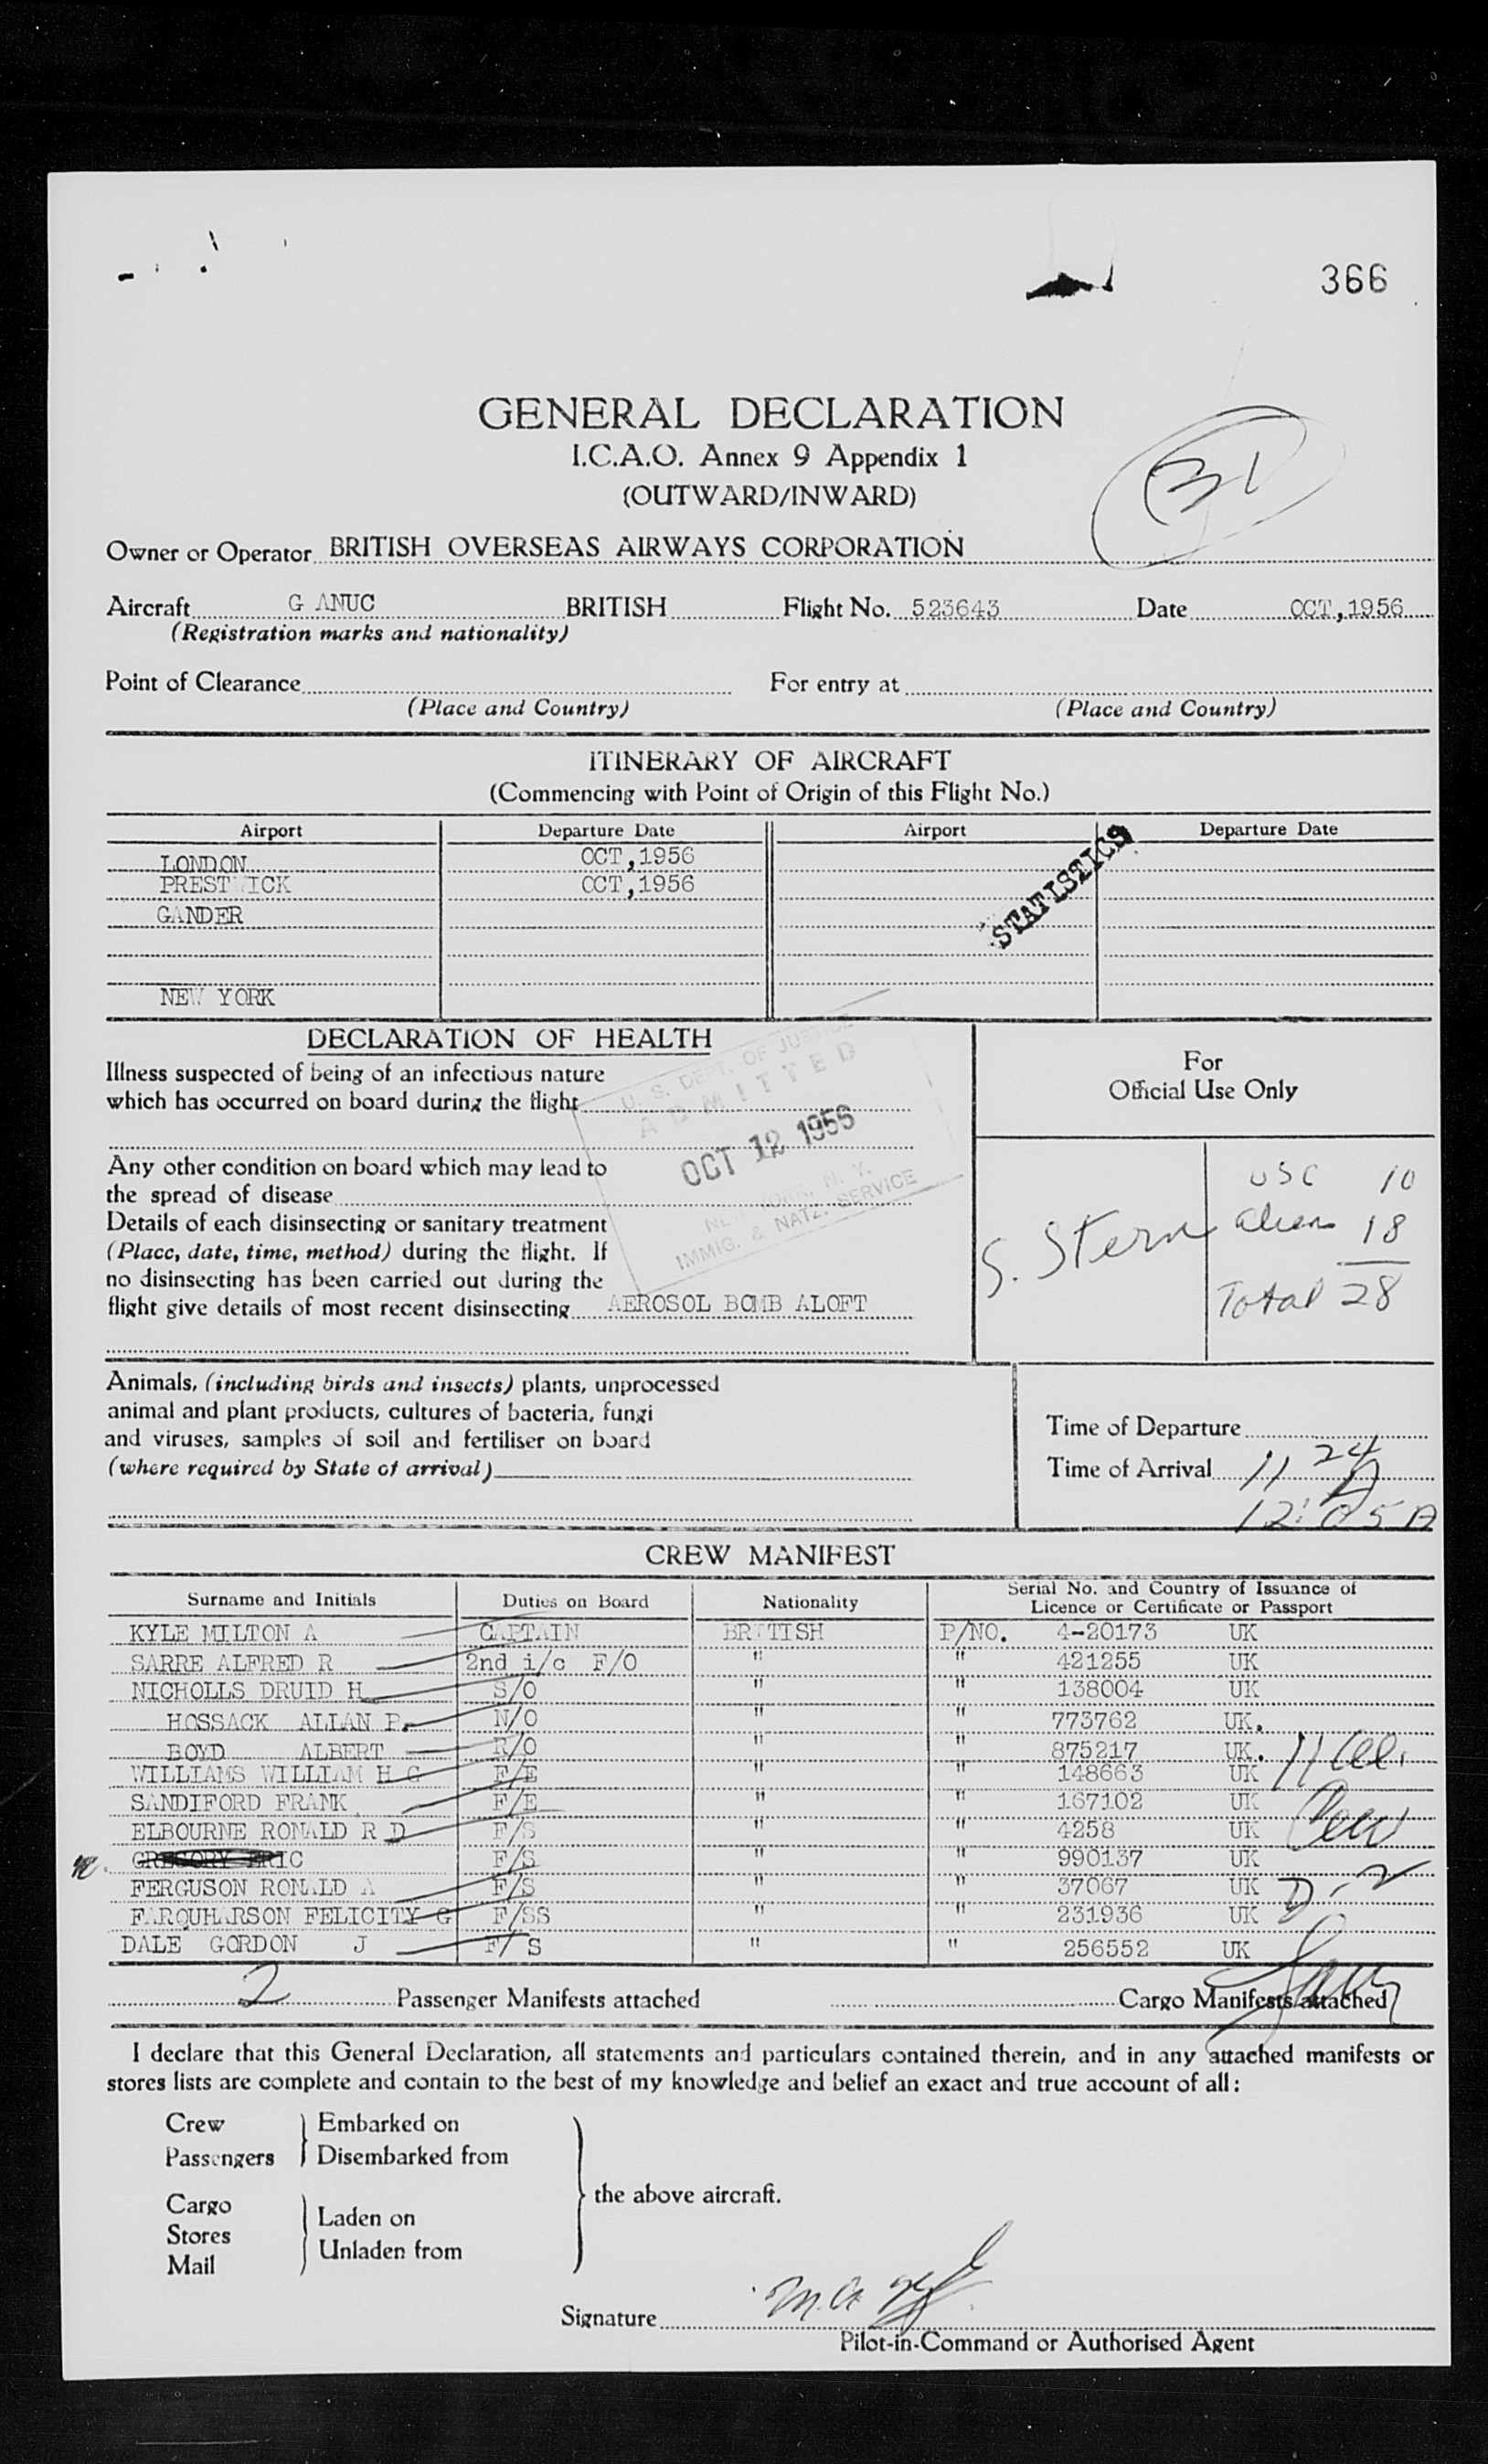 366
GENERAL DECLARATION
I.C.A.O. Annex 9 Appendix 1
(OUTWARD/INWARD)
Owner or Operator BRITISH OVERSEAS AIRWAYS CORPORATION
Aircraft G ANUC BRITISH Flight No. 523643 Date OCT,1956
(Registration marks and nationality)
Point of Clearance For entry at
(Place and Country) (Place and Country)
ITINERARY OF AIRCRAFT
(Commencing with Point of Origin of this Flight No.)
Airport Departure Date Airport Departure Date
LONDON OCT,1956
PRESTWICK OCT,1956
STATISTICS
GANDER
NEW YORK
DECLARATION OF HEALTH
For
Official Use Only
Illness suspected of being of an infectious nature
which has occurred on board during the flight
U. S. DEPT. OF JUSTICE
ADMITTED
OCT 12 1956
NEW YORK, N. Y.
IMMIG. & NATZ. SERVICE
Any other condition on board which may lead to
the spread of disease
Details of each disinsecting or sanitary treatment
(Place, date, time, method) during the flight. If
no disinsecting has been carried out during the
flight give details of most recent disinsecting AEROSOL BOMB ALOFT
S. Stern
USC 10
alien 18
Total 28
Animals, (including birds and insects) plants, unprocessed
animal and plant products, cultures of bacteria, fungi
and viruses, samples of soil and fertiliser on board
(where required by State of arrival)
Time of Departure
Time of Arrival 11 24 A
12:05 A
CREW MANIFEST
Surname and Initials Duties on Board Nationality Serial No. and Country of Issuance of Licence or Certificate or Passport
KYLE MILTON A CAPTAIN BRITISH P/NO. 4-20173 UK
SARRE ALFRED R 2nd i/c F/O " " 421255 UK
NICHOLLS DRUID H S/O " " 138004 UK
HOSSACK ALLAN P. N/O " " 773762 UK.
BOYD ALBERT R/O " " 875217 UK.
WILLIAMS WILLIAM H G F/E " " 148663 UK
SANDIFORD FRANK F/E " " 167102 UK
ELBOURNE RONALD R D F/S " " 4258 UK
GREGORY ERIC F/S " " 990137 UK
FERGUSON RONALD A F/S " " 37067 UK
FARQUHARSON FELICITY G F/SS " " 231936 UK
DALE GORDON J F/S " " 256552 UK
11
D-2
2 Passenger Manifests attached Cargo Manifests attached
I declare that this General Declaration, all statements and particulars contained therein, and in any attached manifests or
stores lists are complete and contain to the best of my knowledge and belief an exact and true account of all:
Crew Embarked on
Passengers Disembarked from
the above aircraft.
Cargo
Stores Laden on
Mail Unladen from
Signature
Pilot-in-Command or Authorised Agent